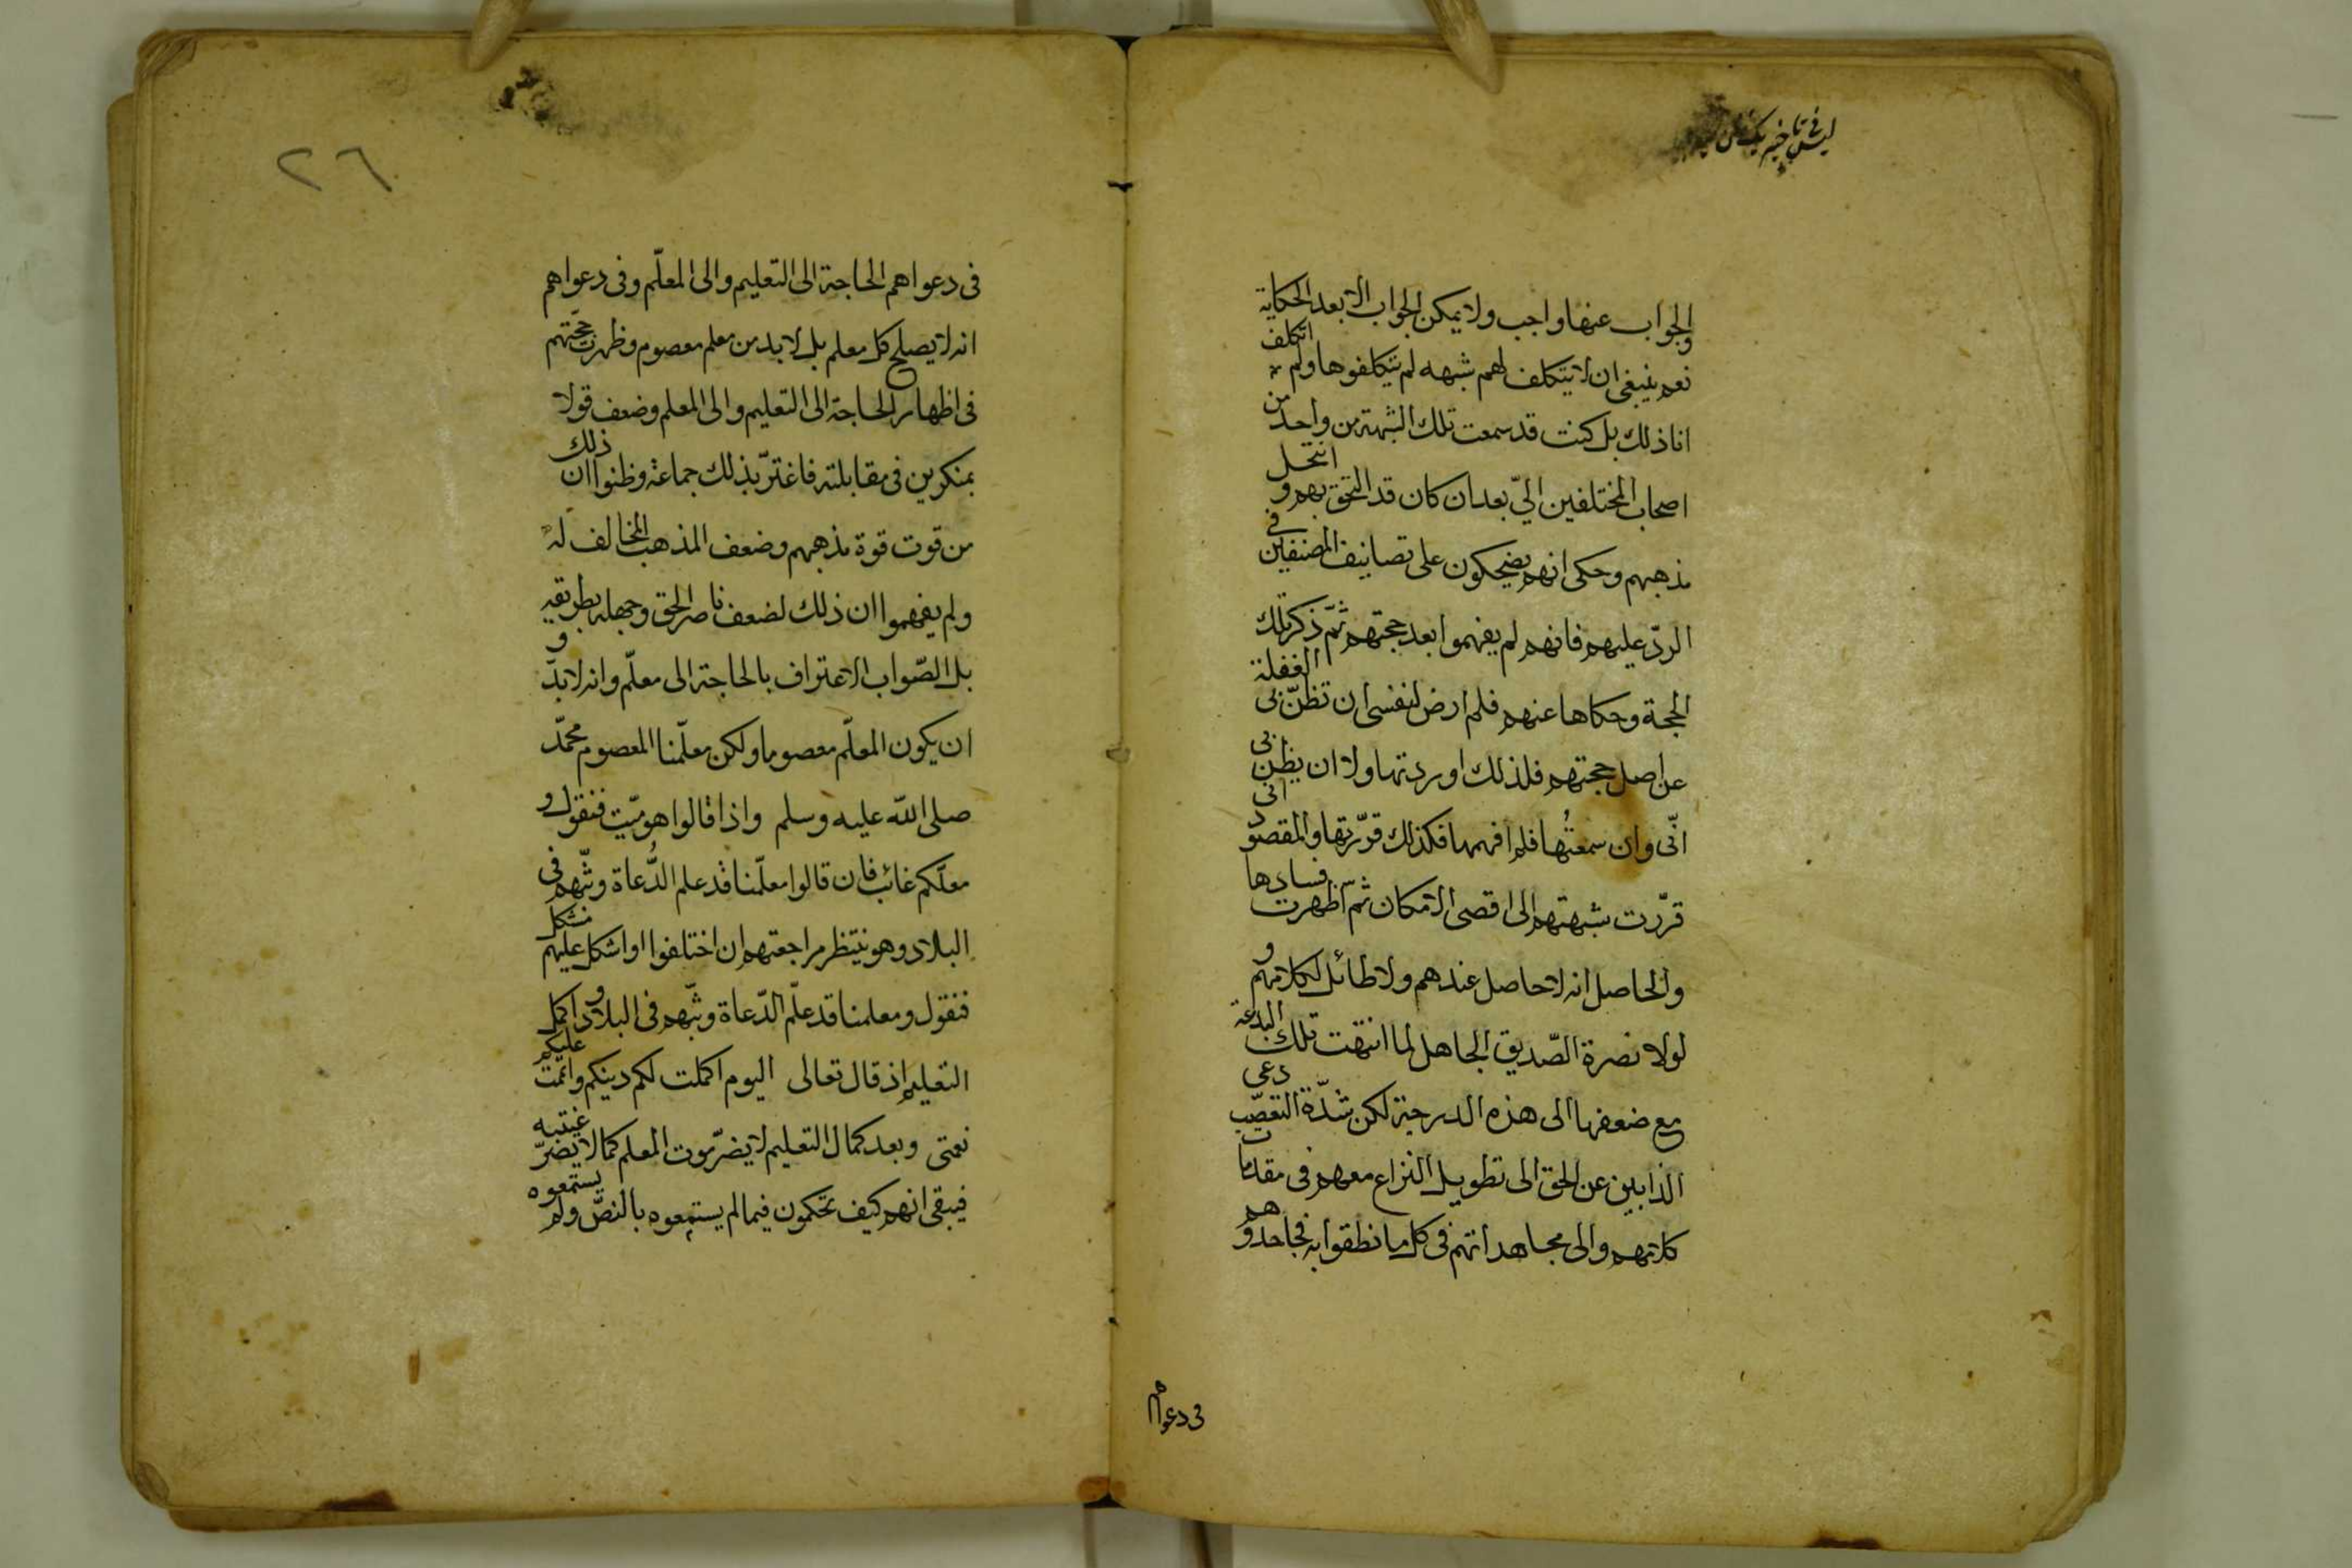 والجواب عنها واجب ولا يمكن الجواب الا بعد الحكاية
نعم ينبغى ان لا يتكلف لهم شبهه لم يتكلفوها ولم اتكلف
انا ذلك بل كنت قد سمعت تلك الشبهة من واحد من
اصحاب المختلفين اليّ بعد ان كان قد التحق بهم و انتحل
مذهبهم وحكى انهم يضحكون على تصانيف المصنفين فى
الردّ عليهم فانهم لم يفهموا بعد حجتهم ثمّ ذكر تلك
الحجة وحكاها عنهم فلم ارض لنفسى ان تظنّ بى الغفلة
عن اصل حجتهم فلذلك اوردتها ولا ان يظن بى
انّى وان سمعتُها فلم افهمها فكذلك قرّرتها والمقصود انى
قرّرت شبهتهم الى اقصى الامكان ثم اظهرت فسادها
والحاصل انه لا حاصل عندهم ولا طائل لكلامهم و
لولا نصرة الصّديق الجاهل لما انتهت تلك البدعة
مع ضعفها الى هذه الدرجة لكن شدّة التعصّب دعى
الذابين عن الحق الى تطويل النزاع معهم فى مقدمات
كلامهم والى مجاهداتهم فى كل ما نطقوا به فجاحدوهم
فى دعواهم
٢٦
فى دعواهم الحاجة الى التعليم والى المعلّم وفى دعواهم
انه لا يصلح كل معلم بل لا بد من معلم معصوم وظهرت حجّتهم
فى اظهار الحاجة الى التعليم والى المعلم وضعف قولا
بمنكرين فى مقابلته فاغترّ بذلك جماعة وظنوا ان ذلك
من قوت قوة مذهبهم وضعف المذهب المخالف له
ولم يفهموا ان ذلك لضعف ناصر الحق وجهله بطريقه
بل الصّواب الاعتراف بالحاجة الى معلّم وانه لا بدّ و
ان يكون المعلّم معصوما ولكن معلّمنا المعصوم محمّد
صلى الله عليه وسلم واذا قالوا هو ميّت فنقول و
معلّمكم غائب فان قالوا معلّمنا قد علم الدُّعاة وبثّهم فى
البلاد وهو ينتظر مراجعتهم ان اختلفوا او اشكل عليهم مشكل
فنقول ومعلمنا قد علّم الدّعاة وبثّهم فى البلاد و اكمل
التعليم اذ قال تعالى اليوم اكملت لكم دينكم واتممت عليكم
نعمتى وبعد كمال التعليم لا يضرّ موت المعلم كما لا يضرّ غيبته
فيبقى انهم كيف تحكمون فيما لم يستمعوه بالنصّ ولم يستمعوه